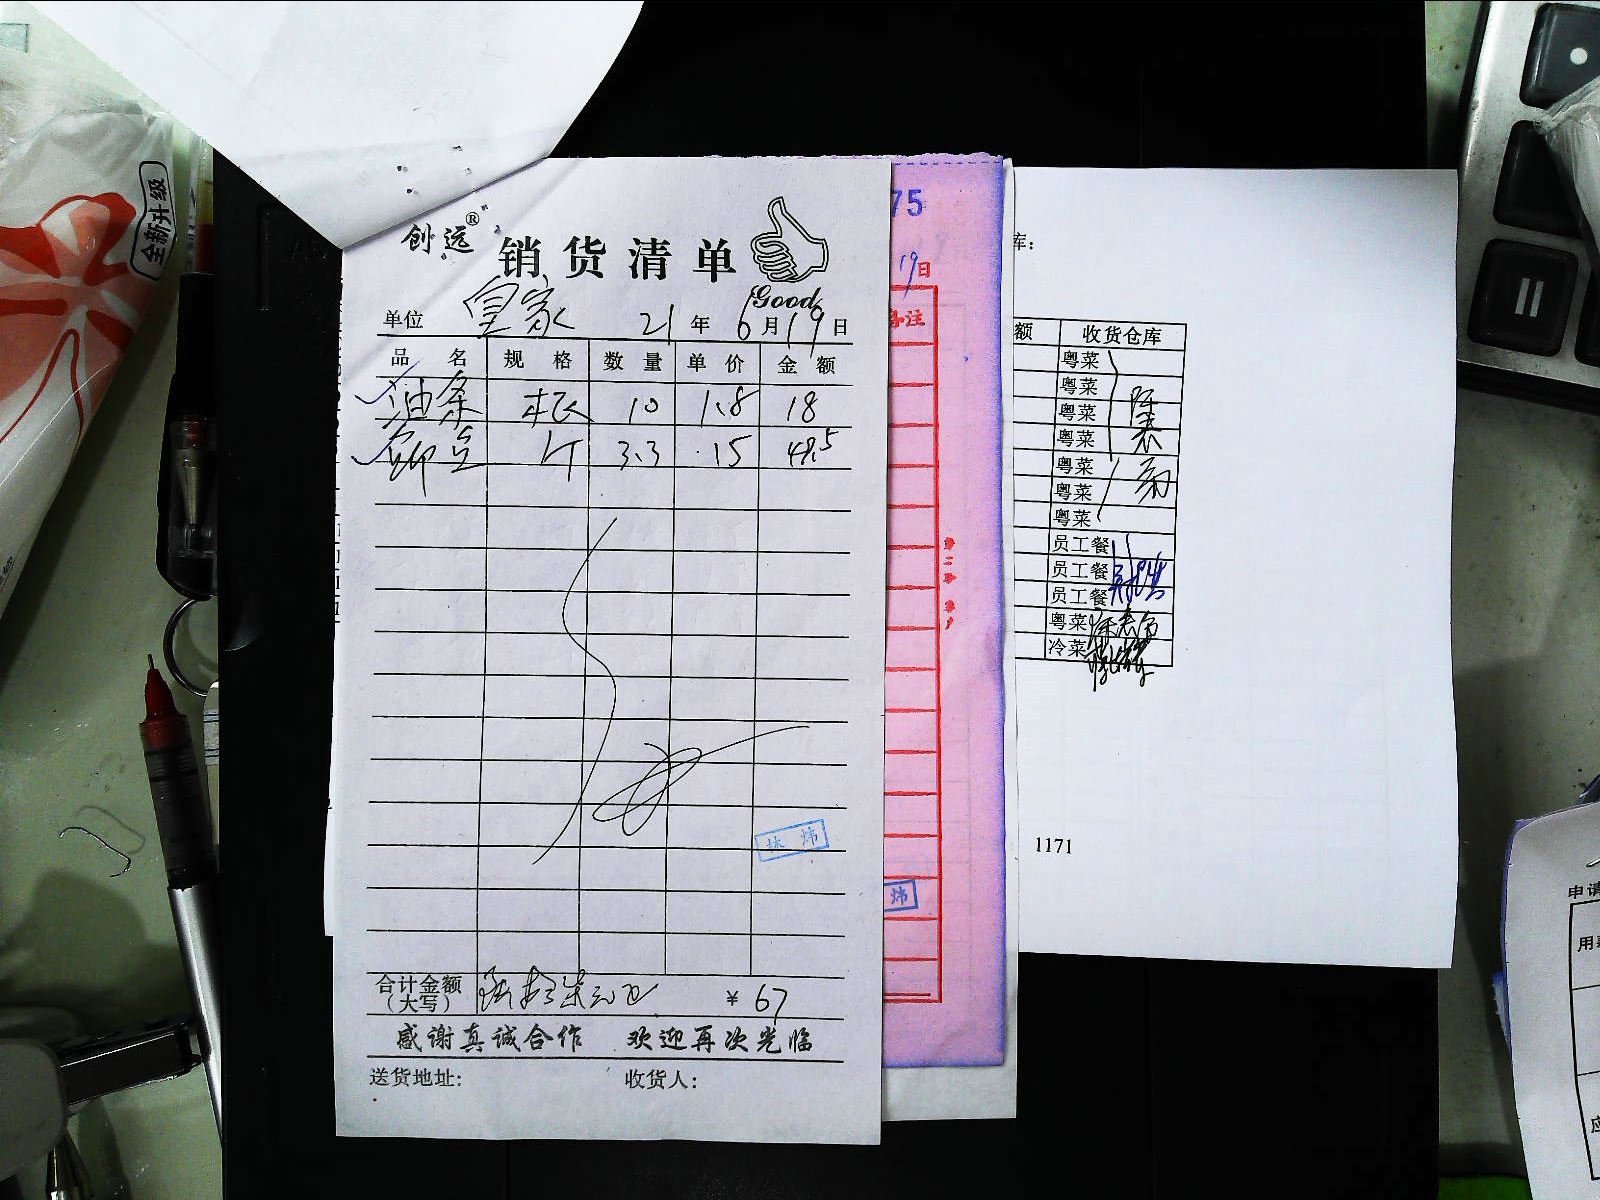 全新升级
创运®
销货清单
Good
单位 皇家 21年6月19日
品名 规格 数量 单价 金额
油条 根 10 1.8 18
卤 斤 3.3 15 49.5
林炜
合计金额(大写) 陆拾柒元正 ¥67
感谢真诚合作 欢迎再次光临
送货地址: 收货人:
75
19日
备注
第二联 客户
炜
库:
额 收货仓库
粤菜
粤菜
粤菜
粤菜
粤菜
粤菜
粤菜
员工餐
员工餐
员工餐
粤菜
冷菜
1171
申请
用
应